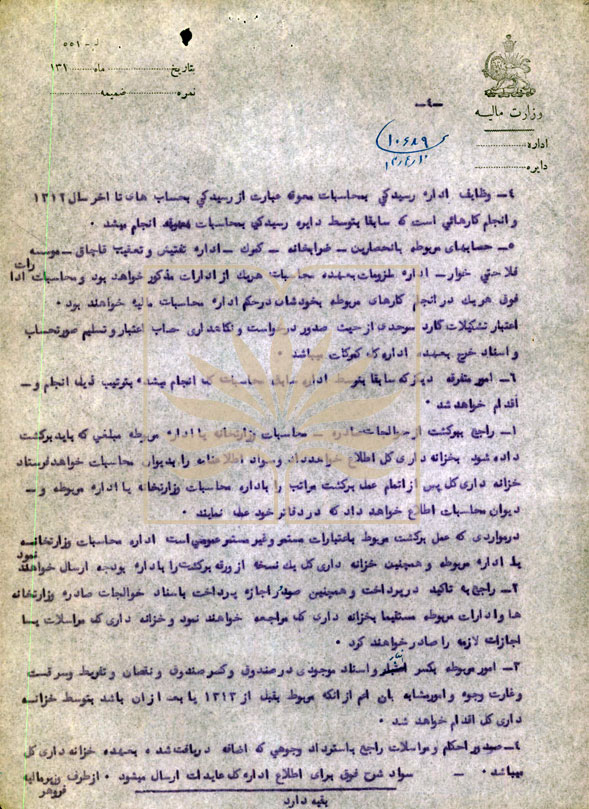 ل-۵۵۱
تاریخ ماه ۱۳۱
نمره ضمیمه
وزارت مالیه
اداره
دایره
-۴-
۱۰۶۸۹
۴- وظایف اداره رسیدگی بمحاسبات معوقه عبارت از رسیدگی بحساب های تا اخر سال ۱۳۱۲
و انجام کارهائی است که سابقا بتوسط دایره رسیدگی بمحاسبات معوقه انجام میشد ۰
۵- حسابهای مربوطه بانحصارین - ضرابخانه - گمرک - اداره تفتیش و تعقیب قاچاق - موسسه
فلاحتی خوار - اداره ملزومات بعهده محاسبات هریک از ادارات مذکور خواهد بود و محاسبات ادارات
فوق هریک در انجام کارهای مربوطه بخودشان در حکم اداره محاسبات مالیه خواهند بود ۰
اعتبار تشکیلات گارد سرحدی از حیث صدور درخواست و نگاهداری حساب اعتبار و تسلیم صورتحساب
و اسناد خرج بعهده اداره کل گمرکات میباشد ۰
۶- امور متفرقه دیگر که سابقا بتوسط اداره سابق محاسبات کل انجام میشده بترتیب ذیل انجام و -
اقدام خواهد شد ۰
۱- راجع ببرگشت از حوالجات صادره - محاسبات وزارتخانه یا اداره مربوطه مبلغی که باید برگشت
داده شود بخزانه داری کل اطلاع خواهد داد و سواد اطلاعنامه را بدیوان محاسبات خواهد فرستاد
خزانه داری کل پس از اتمام عمل برگشت مراتب را باداره محاسبات وزارتخانه یا اداره مربوطه و -
دیوان محاسبات اطلاع خواهد داد که در دفاتر خود عمل نمایند ۰
در مواردی که عمل برگشت مربوط باعتبارات مستمر و غیر مستمر عمومی است اداره محاسبات وزارتخانه
یا اداره مربوطه و همچنین خزانه داری کل یک نسخه از ورقه برگشت را باداره بودجه ارسال خواهند نمود
۲- راجع به تاکید در پرداخت و همچنین صدور اجازه پرداخت باسناد حوالجات صادره وزارتخانه
ها و ادارات مربوطه مستقیما بخزانه داری کل مراجعه خواهند نمود و خزانه داری کل مراسلات یا
اجازات لازمه را صادر خواهند کرد ۰
۳- امور مربوطه بکسر انبار و اسناد موجودی در صندوق و کسر صندوق و نقصان و تفریط و سرقت
و غارت وجوه و امور مشابه بان اعم از انکه مربوط بقبل از ۱۳۱۲ یا بعد از ان باشد بتوسط خزانه
داری کل اقدام خواهد شد ۰
۴- صدور احکام و مراسلات راجع باسترداد وجوهی که اضافه دریافت شده بعهده خزانه داری کل
میباشد ۰ - سواد شرح فوق برای اطلاع اداره کل عایدات ارسال میشود ۰ از طرف وزیر مالیه
فروهر
بقیه دارد